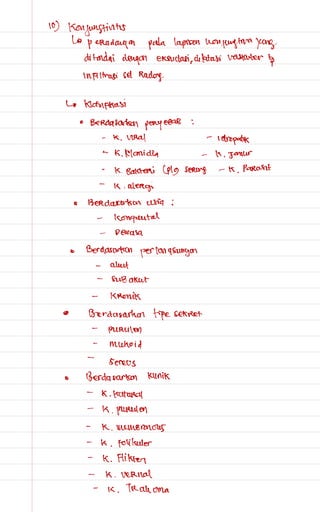 10) Konjungtivitis
↳ peradangan pada lapisan konjungtiva yang
ditandai dengan eksudasi, dilatasi vaskuler &
infiltrasi sel Radag.
↳ Klasifikasi
• Berdasarkan penyebab :
- K. viral - Idiopatik
- K. Klamidia - K. Jamur
- K. Bakteri (plg sering - K. Parasit
- K. alergi
• Berdasarkan usia :
- Kongenital
- Dewasa
• Berdasarkan perlangsungan
- akut
- Sub akut
- Kronik
• Berdasarkan tipe sekret
- Purulen
- mukoid
- Serous
• Berdasarkan klinik
- K. kataral
- K. purulen
- K. membranous
- K. folikuler
- K. Flikten
- K. vernal
- K. Trakoma